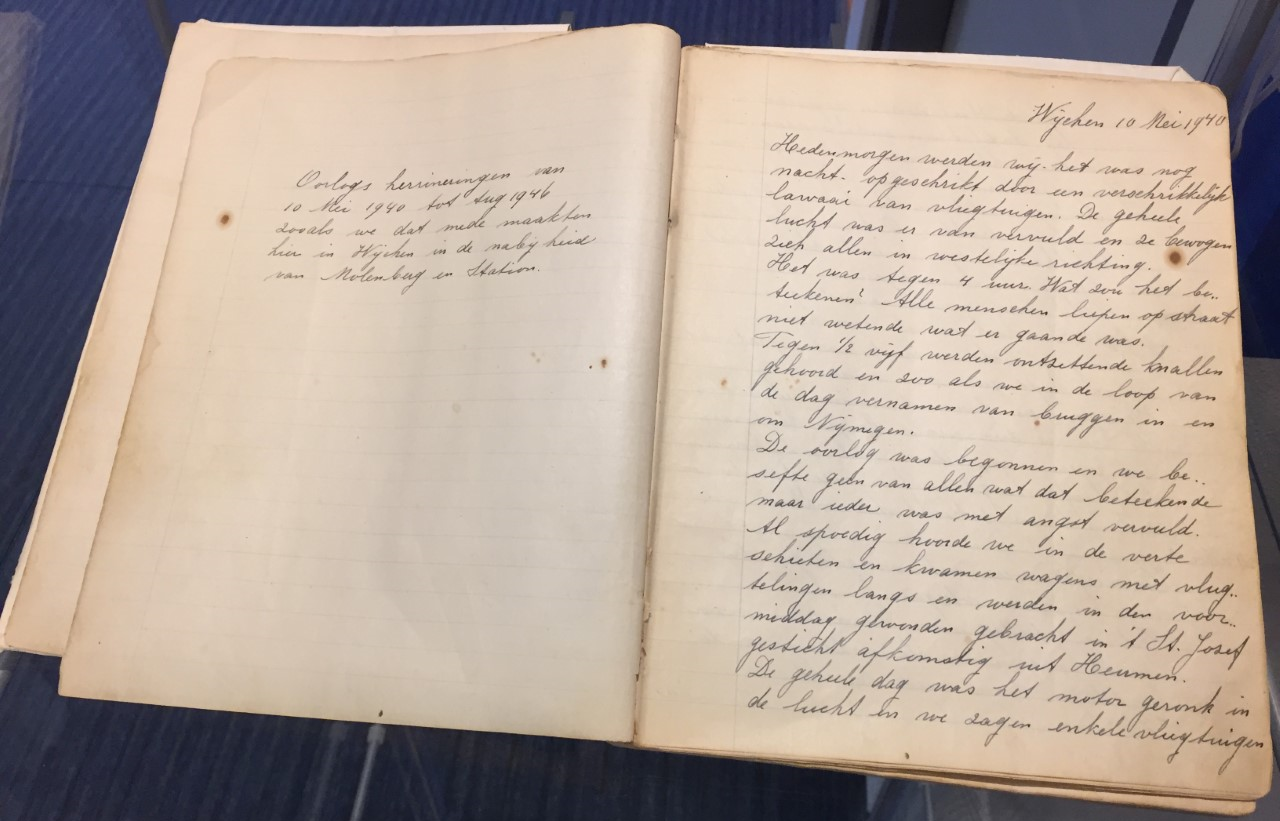 Oorlogs herrineringen van
10 Mei 1940 tot Aug 1946
zooals we dat mede maakten
hier in Wijchen in de nabijheid
van Molenberg en Station.
Wijchen 10 Mei 1940
Hedenmorgen werden wij - het was nog
nacht - opgeschrikt door een verschrikkelijk
lawaai van vliegtuigen. De geheele
lucht was er van vervuld en ze bewogen
zich allen in westelijke richting.
Het was tegen 4 uur. Wat zou het be..
teekenen? Alle menschen liepen op straat
niet wetende wat er gaande was.
Tegen 1/2 vijf werden ontzettende knallen
gehoord en zoo als we in de loop van
de dag vernamen van bruggen in en
om Nijmegen.
De oorlog was begonnen en we be..
sefte geen van allen wat dat beteekende
maar ieder was met angst vervuld.
Al spoedig hoorde we in de verte
schieten en kwamen wagens met vlug..
telingen langs en werden in den voor..
middag gewonden gebracht in 't St. Jozef
gesticht afkomstig uit Heumen.
De geheele dag was het motor geronk in
de lucht en we zagen enkele vliegtuigen